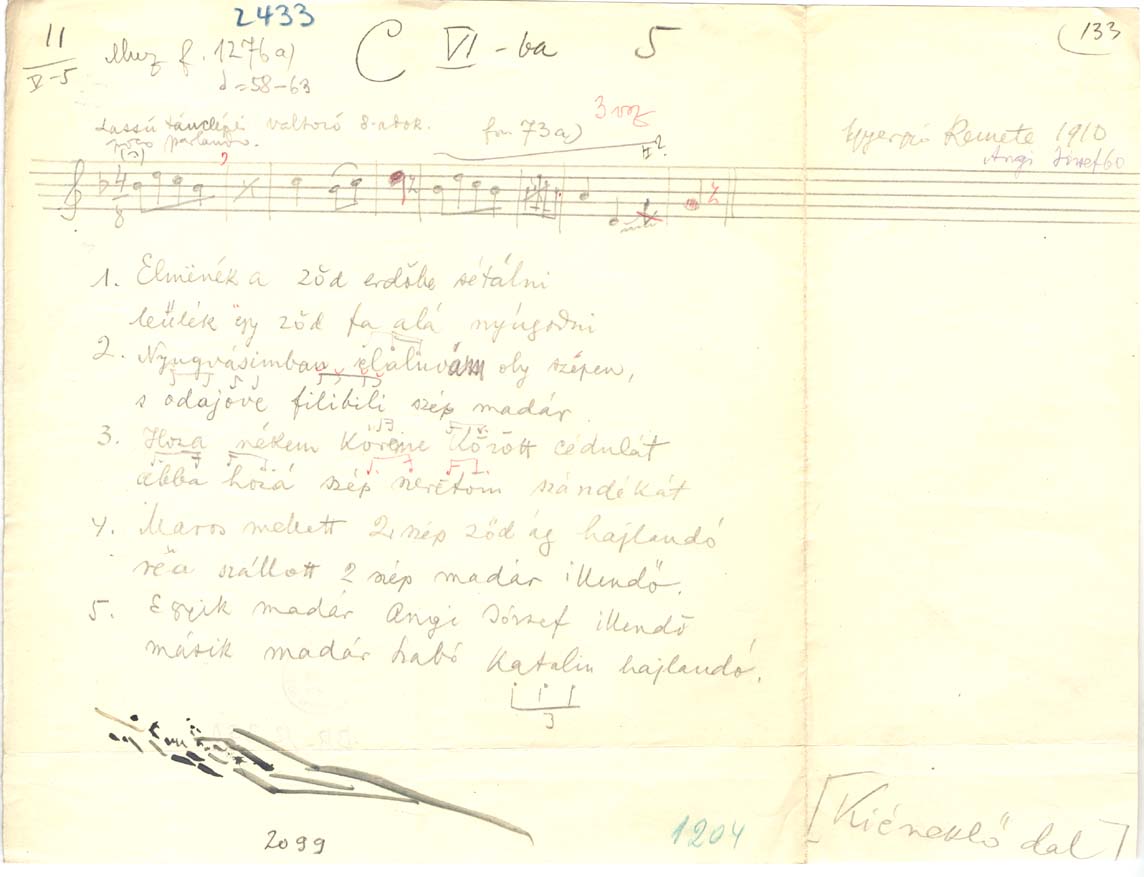 2433
11
V-5
Muz f. 1276a)
C VI-ba 5
133
♩=58-63
Lassú tánclépés változó 8-adok.
poco parlando.
fon 73a)
3 vsz
Gyergyó Remete 1910
Angi József 60
4
8
1. Elminék a ződ erdőbe sétálni
leűlék ëgy ződ fa alá nyúgodni
2. Nyugvásimban elaluvám oly szépen,
s odajöve filibili szép madár
3. Hoza nékem Körbe Körött cédulát
abba hozá szép szeretőm szándékát
4. Maros mellett 2 szép ződ ág hajlandó
réa szállott 2 szép madár illendő.
5. Egyik madár Angi József illendő
másik madár Szabó Katalin hajlandó.
3
2099
1204
[Kiéneklő dal]